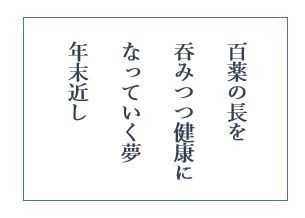 百薬の長を
呑みつつ健康に
なっていく夢
年末近し